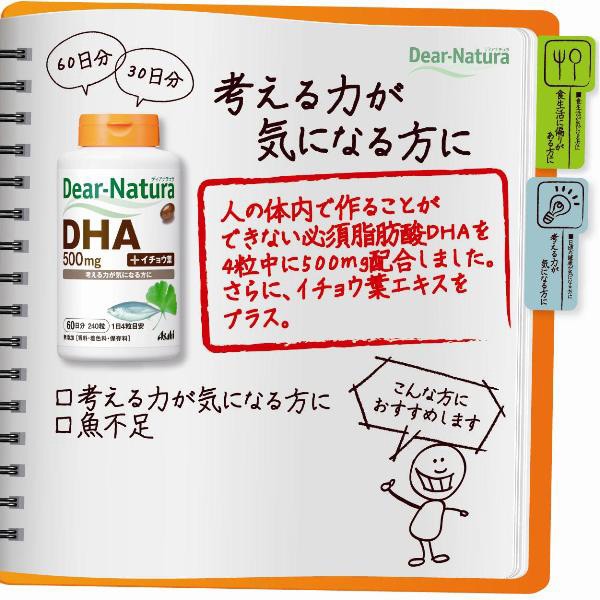 60日分
30日分
Dear-Natura
ディアナチュラ
考える力が
気になる方に
食生活に偏りが
ある方に
考える力が
気になる方に
Dear-Natura
ディアナチュラ
DHA
500mg
+イチョウ葉
考える力が気になる方に
60日分 240粒 1日4粒目安
無添加[香料・着色料・保存料]
Asahi
人の体内で作ることが
できない必須脂肪酸DHAを
4粒中に500mg配合しました。
さらに、イチョウ葉エキスを
プラス。
□考える力が気になる方に
□魚不足
こんな方に
おすすめします